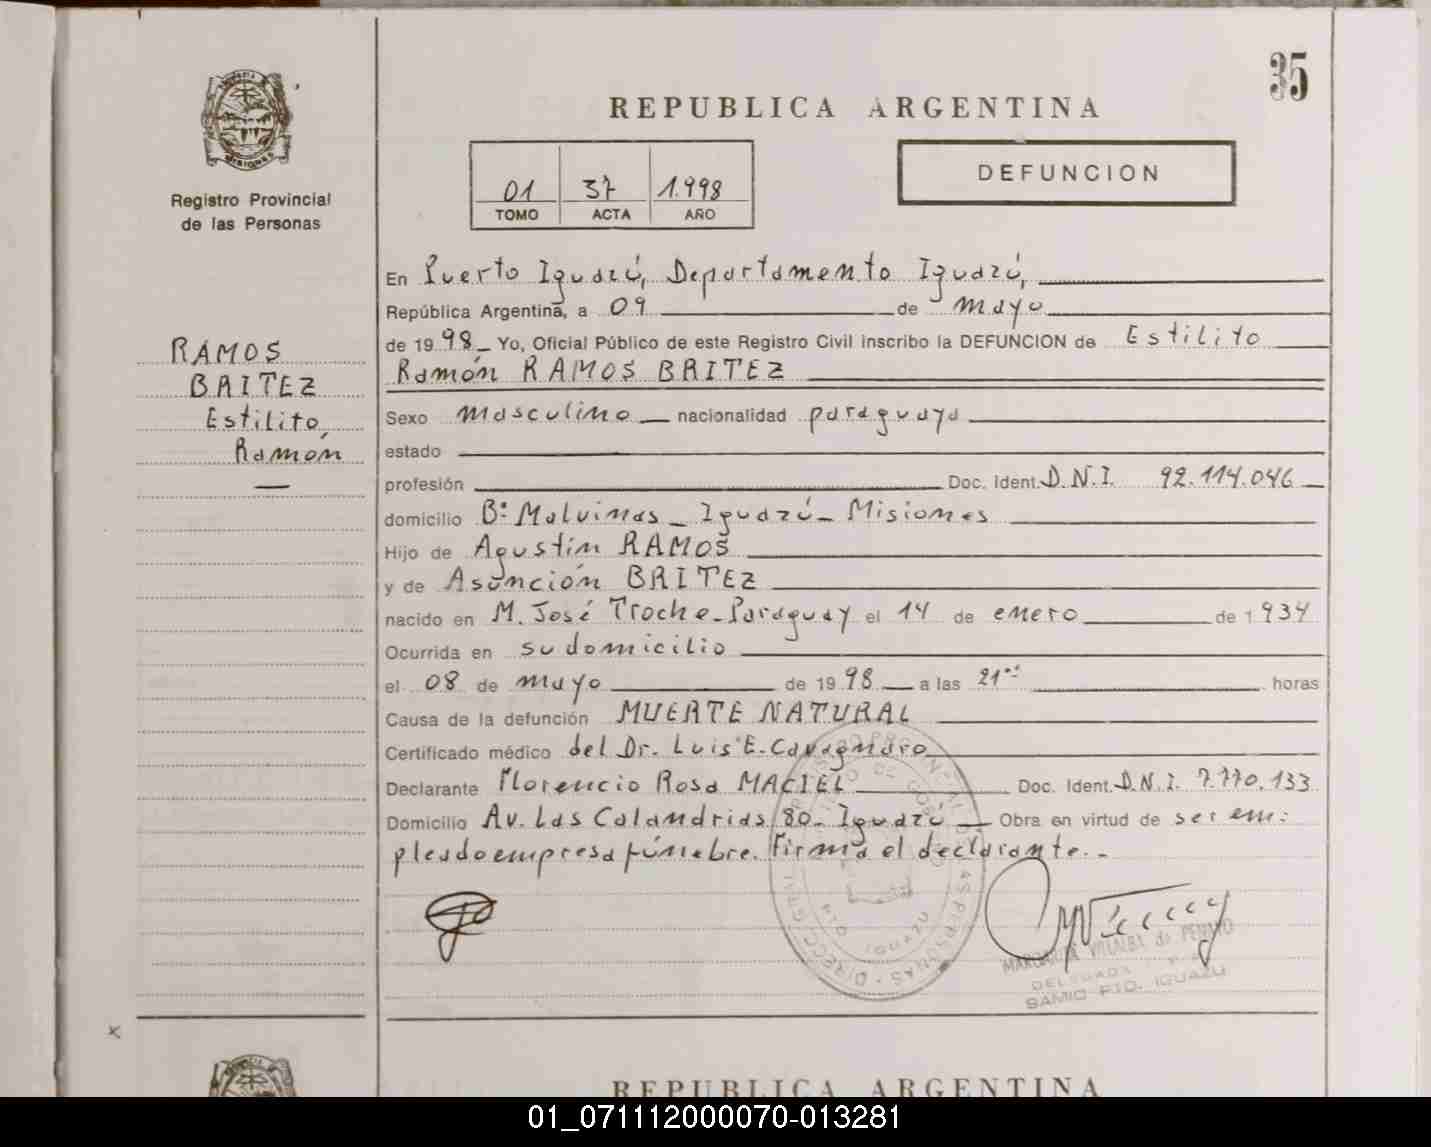 35
PROVINCIA DE
MISIONES
Registro Provincial
de las Personas
RAMOS
BRITEZ
Estilito
Ramón
—
REPUBLICA ARGENTINA
01 37 1.998
TOMO ACTA AÑO
DEFUNCION
En Puerto Iguazú, Departamento Iguazú,
República Argentina, a 09 de mayo
de 1998 _ Yo, Oficial Público de este Registro Civil inscribo la DEFUNCION de Estilito
Ramón RAMOS BRITEZ
Sexo masculino nacionalidad paraguaya
estado
profesión Doc. Ident. D.N.I. 92.114.046
domicilio Bº Malvinas _ Iguazú _ Misiones
Hijo de Agustín RAMOS
y de Asunción BRITEZ
nacido en M. José Troche - Paraguay el 14 de enero de 1934
Ocurrida en su domicilio
el 08 de mayo de 1998 a las 21 horas
Causa de la defunción MUERTE NATURAL
Certificado médico del Dr. Luis E. Cavagnaro
Declarante Florencio Rosa MACIEL Doc. Ident. D.N.I. 7.770.133
Domicilio Av. Las Calandrias 80 - Iguazú — Obra en virtud de ser em:
pleado empresa fúnebre. Firma el declarante. -
MARGARITA VILLALBA de PENAYO
DELEGADA
SAMIC PTO. IGUAZU
REPUBLICA ARGENTINA
01_071112000070-013281